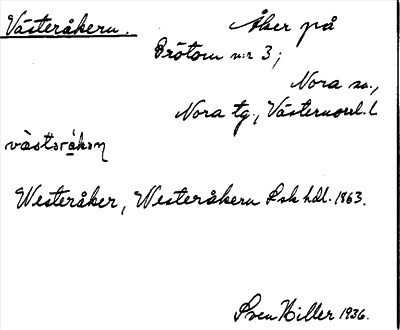 Västeråkern.
Åker på
Brötom n:r 3;
Nora sn.,
Nora tg., Västernorrl. l
västəråkən
Westeråker, Westeråkern Lsk hdl. 1863.
Sven Hiller 1936.